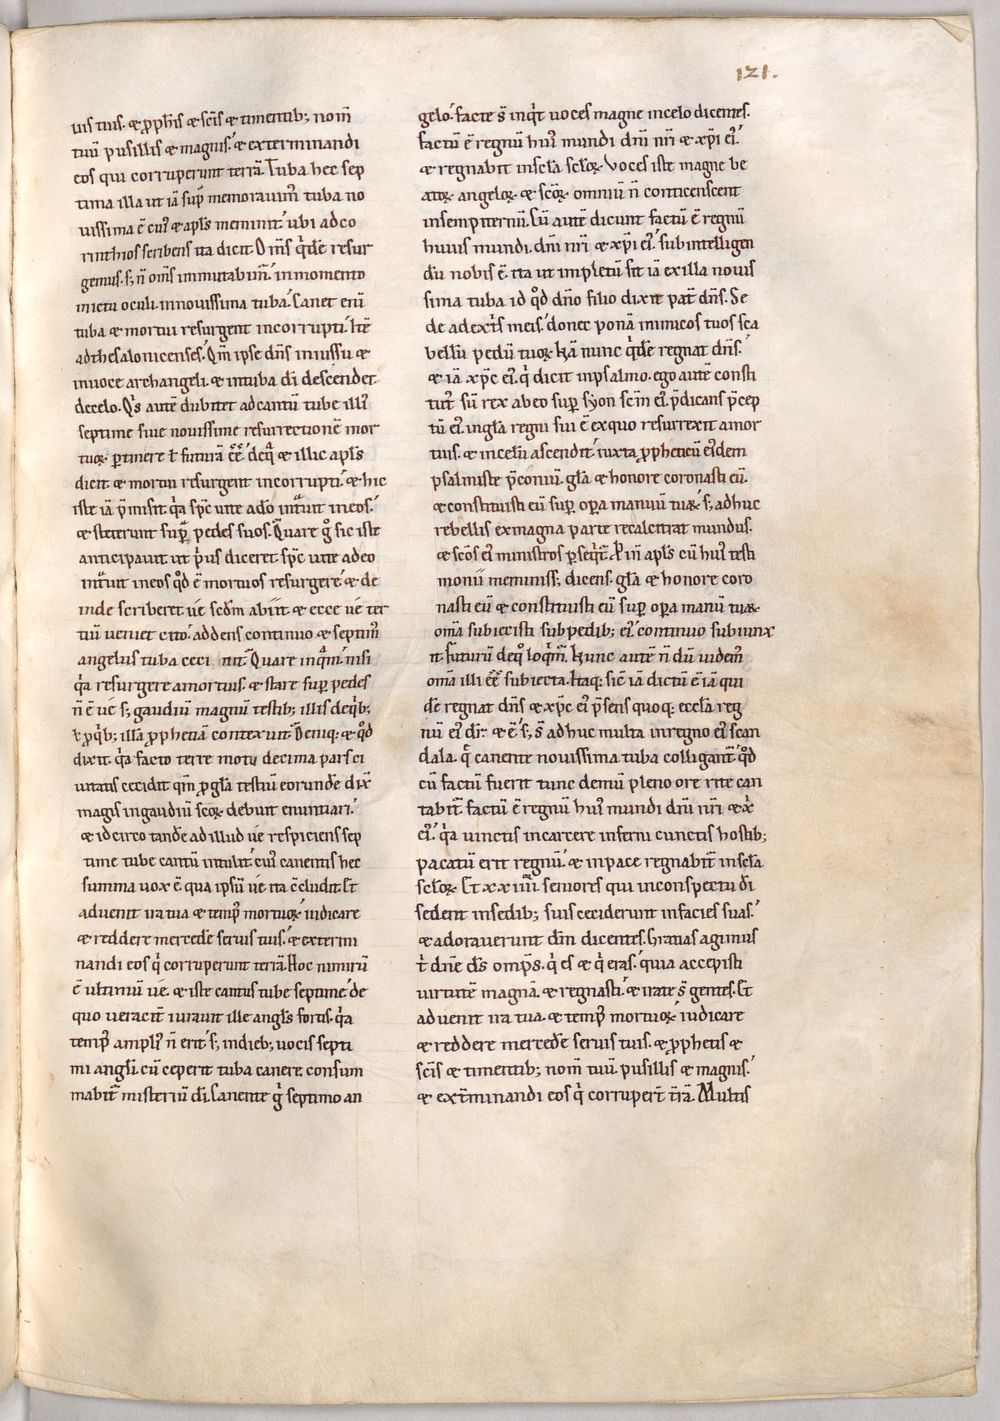 121.
uis tuis. & ꝓph̄is & sc̄is & timentib; nom̄
tuū pusillis & magnis.́ & exterminandi
eos qui corruperunt terrā. Tuba hec sep
tima illa ut iā sup̄ memorauim̄ tuba no
uissima ē cui᷒ & apl̄s meminit.́ ubi adco
rinthios scribens ita dicit. Om̄s q̇dē resur
gemus. s; n̄ om̄s immutabim̄.́ inmomento
inictu oculi. innouissima tuba.́ Canet eni
tuba & mortui resurgent incorrupti.́ Itē
adthesalonicenses.́ Qm̄ ipse dn̄s iniussu &
inuoce archangeli. & intuba dī descendet
decelo. Qis autē dubitet adcantū tube illi᷒
septime siue nouissime resurrectionē mor
tuoꝝ ꝑtinere ł futurā eḗ. deq̄ & illic apl̄s
dicit & mortui resurgent incorrupti.́ & hic
iste iā p̄misit. qa sp̄c uite ado intuit ineos.́
& steterunt sup̄ pedes suos. Quare g̊ sic iste
anticipauit ut p̓us diceret. sp̄c uite adeo
int̄uit ineos qd̊ ē mortuos resurgere.́ & de
inde scriberet ue scdm abiit & ecce ue ter
tiū ueniet cito.́ addens continuo & septim᷒
angelus tuba ceci nit. Quare inqm̄.́ nisi
qa resurgere amortuis. & stare sup̄ pedes
n̄ ē ue s; gaudiū magnū testib; illis deqb;
ł ꝓqb; illā ꝓphetiā contexuit. Deniq; & qd̊
dixit. qa facto terre motu decima pars ci
uitatis cecidit qm̄ ꝓgła testiū eorundē dix̄
magis ingaudiū scoꝝ debuit enuntiari.́
& idcirco tandē ad illud ue respiciens sep
time tube cantū intulit.́ cui᷒ canentis hec
summa uox ē. qua ipsū ue ita c̄cludit. Et
aduenit ira tua & temp᷒ mortuoꝝ iudicare
& reddere mercedē seruis tuis.́ & extermi
nandi eos q̇ corruperunt terrā. Hoc nimirū
ē ultimū ue. & iste cantus tube septime.́ de
quo ueracit̄ iurauit ille angl̄s fortis. qa
temp᷒ ampli᷒ n̄ erit s; indieb; uocis septi
mi angli. cū ceperit tuba canere consum
mabit̄ misteriū di. Canente g̊ septimo an
gelo.́ facte s̄ inqt uoces magne incelo dicentes.
factū ē regnū hui᷒ mundi dn̄i nr̄i & xp̄i ei᷒.́
& regnabit inscła scłoꝝ. Voces iste magne be
atoꝝ angeloꝝ & scoꝝ omniū n̄ conticenscent
insempiternū. Cū autē dicunt factū ē regnū
huius mundi. dn̄i nr̄i & xp̄i ei᷒.́ subintelligen
dū nobis ē. ita ut impletū sit iā exilla nouis
sima tuba id qd̊ dn̄o filio dixit pat̄ dn̄s. Se
de adext̓s meis.́ donec ponā inimicos tuos sca
bellū pedū tuoꝝ. Nā nunc q̇dē regnat dn̄s.́
& iā xp̄c ei᷒. q̇ dicit inpsalmo. ego autē consti
tut᷒ sū rex abeo sup̄ syon scm̄ ei᷒. p̄dicans p̄cep
tū ei᷒. ingła regni sui ē exquo resurrexit amor
tuis. & incelū ascendit.́ iuxta ꝓpheticū ei᷒dem
psalmiste p̄coniū. gła & honore coronasti eū.
& constituisti eū sup̄ oꝑa manuū tuaꝝ.́ s; adhuc
rebellis exmagna parte recalcitrat mundus.
& scos ei᷒ ministros ꝑseqt̄. Prin̄ apl̄s cū hui᷒ testi
monii meminiss; dicens. gła & honore coro
nasti eū & constituisti eū sup̄ oꝑa manū tuaꝝ
om̄a subiecisti subpedib; ei᷒.́ continuo subiunx
it. futurū deq̊ loqm̄. Nunc autē n̄dū uidem᷒
om̄a illi eḗ subiecta. Itaq; sic̄ iā dictū ē iā qui
dē regnat dn̄s & xp̄c ei᷒ p̄sens quoq; eccłā reg
nū ei᷒ dr̄. & ē s; s̄ adhuc multa inregno ei᷒ scan
dala. q̄ canente nouissima tuba colligant̄.́ qd̊
cū factū fuerit tunc demū pleno ore rite can
tabit̄ factū ē regnū hui᷒ mundi dn̄i nr̄i & xp̄i
ei᷒.́ qa uinctis incarcere inferni cunctis hostib;
pacatū erit regnū.́ & inpace regnabit̄ inscła
scłoꝝ. Et xxiiii seniores qui inconspectu di
sedent insedib; suis ceciderunt infacies suas.́
& adorauerunt dm̄ dicentes. Gratias agimus
t̓ dn̄e ds̄ omp̄s. q̇ es & q̇ eras.́ quia accepisti
uirtutē magnā. & regnasti.́ & irate s̄ gentes. Et
aduenit ira tua. & temp᷒ mortuoꝝ iudicare
& reddere mercedē seruis tuis. & ꝓphetis &
scis & timentib; nom̄ tuū. pusillis & magnis.́
& ext̄minandi eos q̇ corrupert̄ t̄rā. Multis